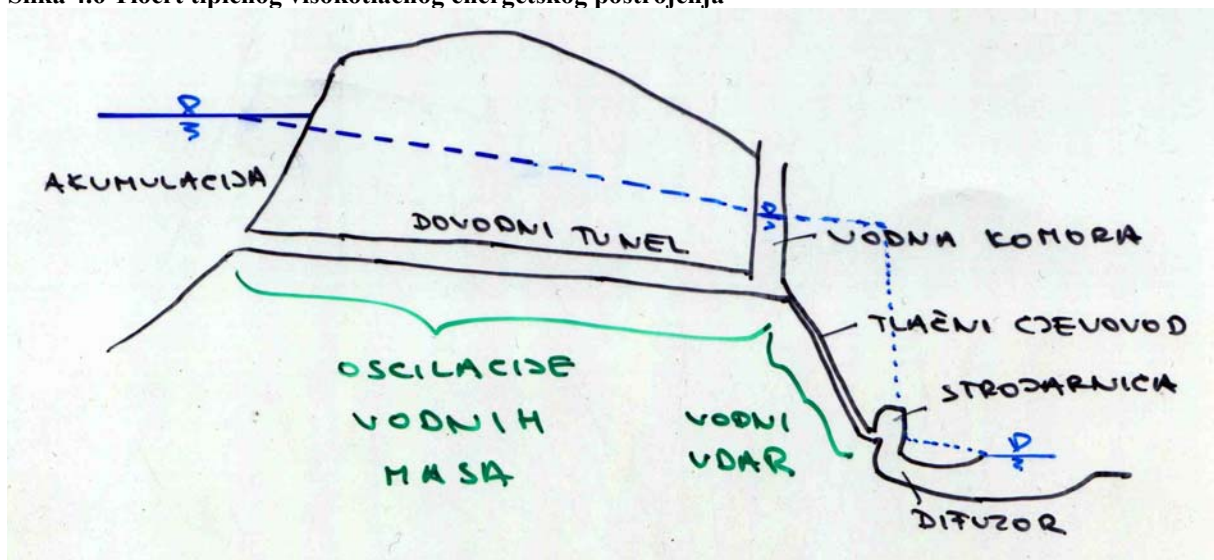 Slika 4.6 Tlocrt tipičnog visokotlačnog energetskog postrojenja
AKUMULACIJA
DOVODNI TUNEL
VODNA KOMORA
TLAČNI CJEVOVOD
STROJARNICA
OSCILACIJE
VODNIH
MASA
VODNI
UDAR
DIFUZOR